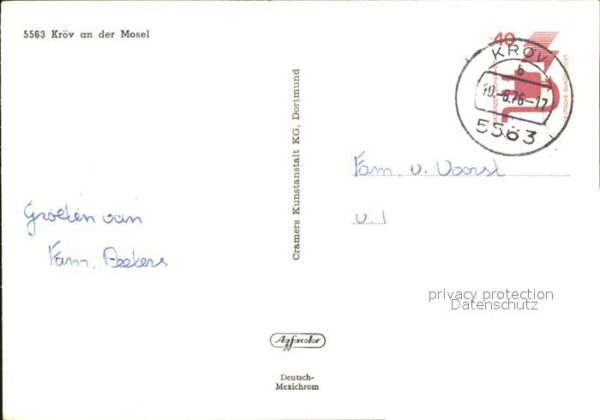 5563 Kröv an der Mosel
40
KRÖV
b
10.-8.76-17
5563
Cramers Kunstanstalt KG, Dortmund
Fam. v. Voorst
v. l
Groeten van
Fam. Peeters
privacy protection
Datenschutz
Agfacolor
Deutsch-
Mexichrom